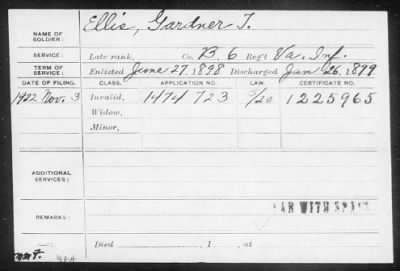 NAME OF SOLDIER: Ellis, Gardner T.
SERVICE: Late rank, Co. B. 6 Reg't Va. Inf.
TERM OF SERVICE: Enlisted June 27, 1898 Discharged Jan 26, 1899
DATE OF FILING. CLASS. APPLICATION NO. LAW. CERTIFICATE NO.
1922 Nov. 3 Invalid, 1474 723 1225965
Widow,
Minor,
ADDITIONAL SERVICES:
REMARKS: WAR WITH SPAIN
Died , 1 , at